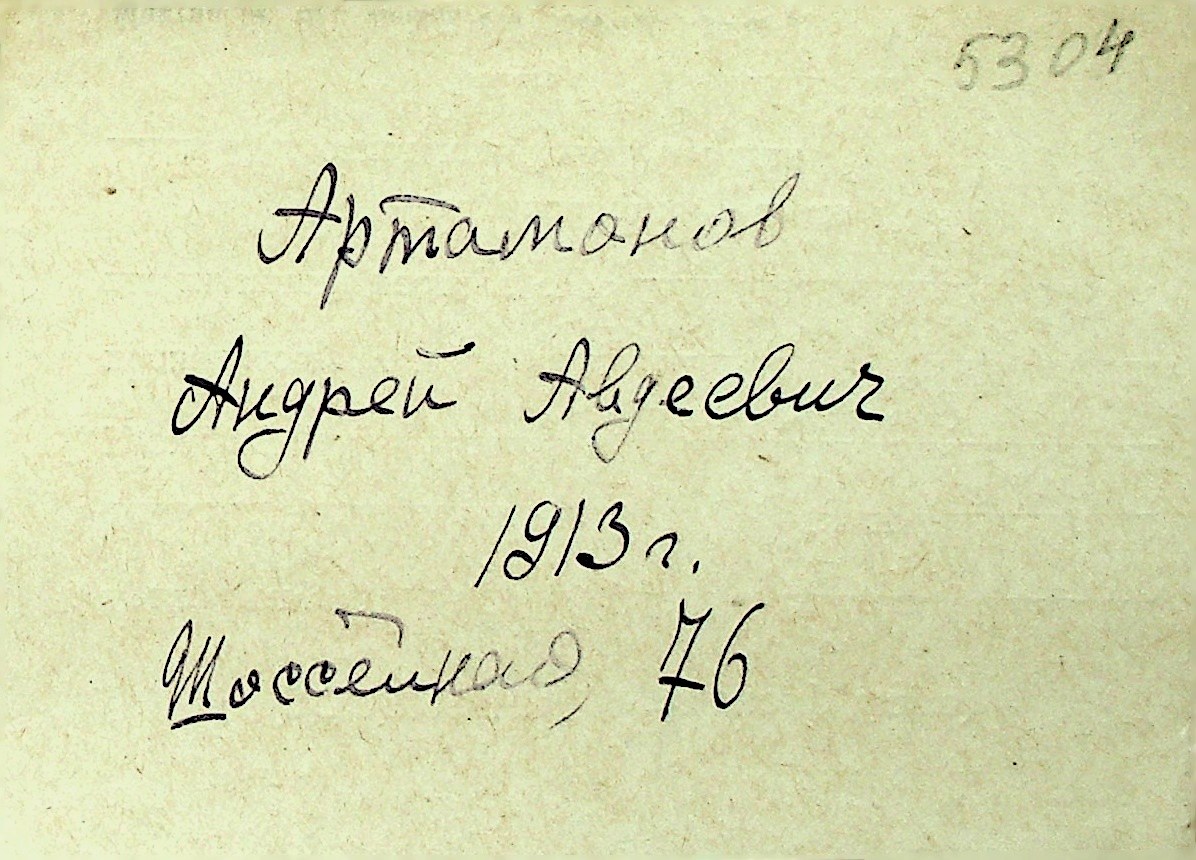 5304
Артамонов
Андрей Авдеевич
1913 г.
Шоссейная, 76